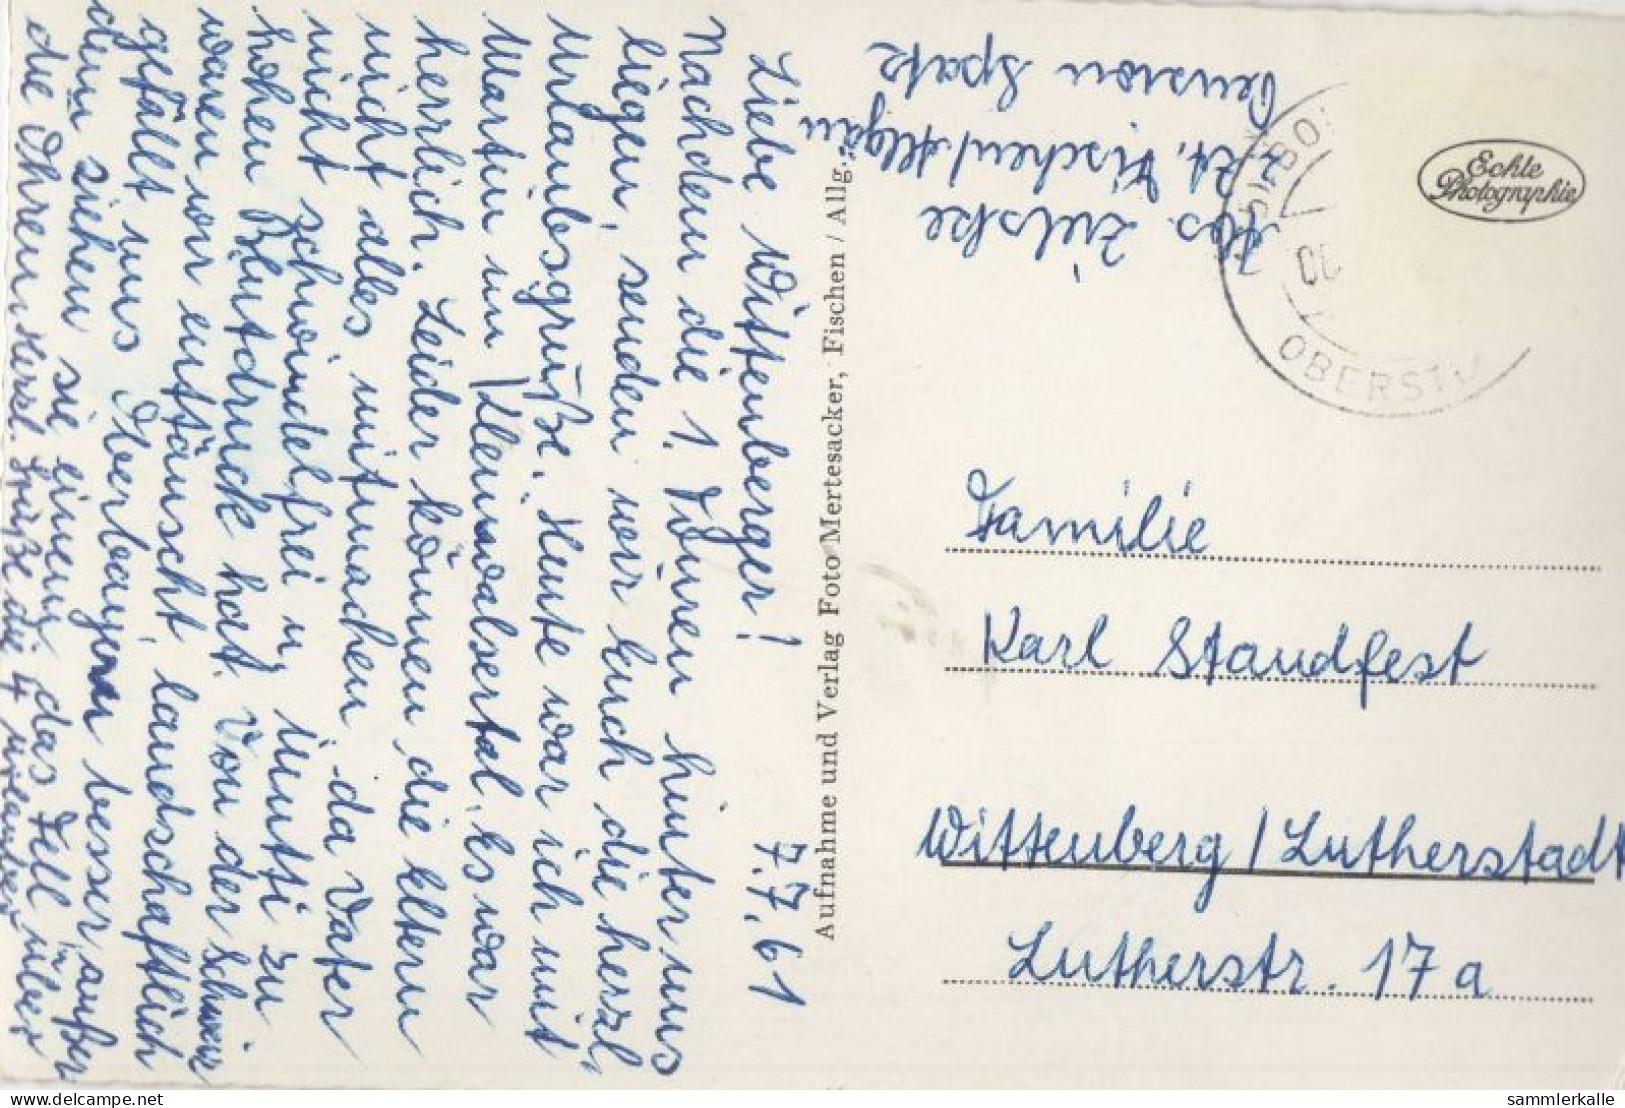 Liebe Wittenberger! 7.7.61
Nachdem die 1. Touren hinter uns
liegen, senden wir Euch die herzl.
Urlaubsgrüße. Heute war ich mit
Martin im Kleinwalsertal. Es war
herrlich. Leider können die Eltern
nicht alles mitmachen, da Vater
nicht schwindelfrei u. Mutti zu
hohen Blutdruck hat. Von der Schweiz
waren wir enttäuscht, landschaftlich
gefällt uns Oberbayern besser, außer-
dem ziehen sie einem das Fell über
die Ohren. Herzl. Grüße die 4 Urlauber
Aufnahme und Verlag Foto Mertesacker, Fischen / Allg.
Abs. Zielske
z. Zt. Fischen/Allgäu
Pension Spatz
Echte
Photographie
OBERST
Familie
Karl Standfest
Wittenberg / Lutherstadt
Lutherstr. 17a
www.delcampe.net
sammlerkalle